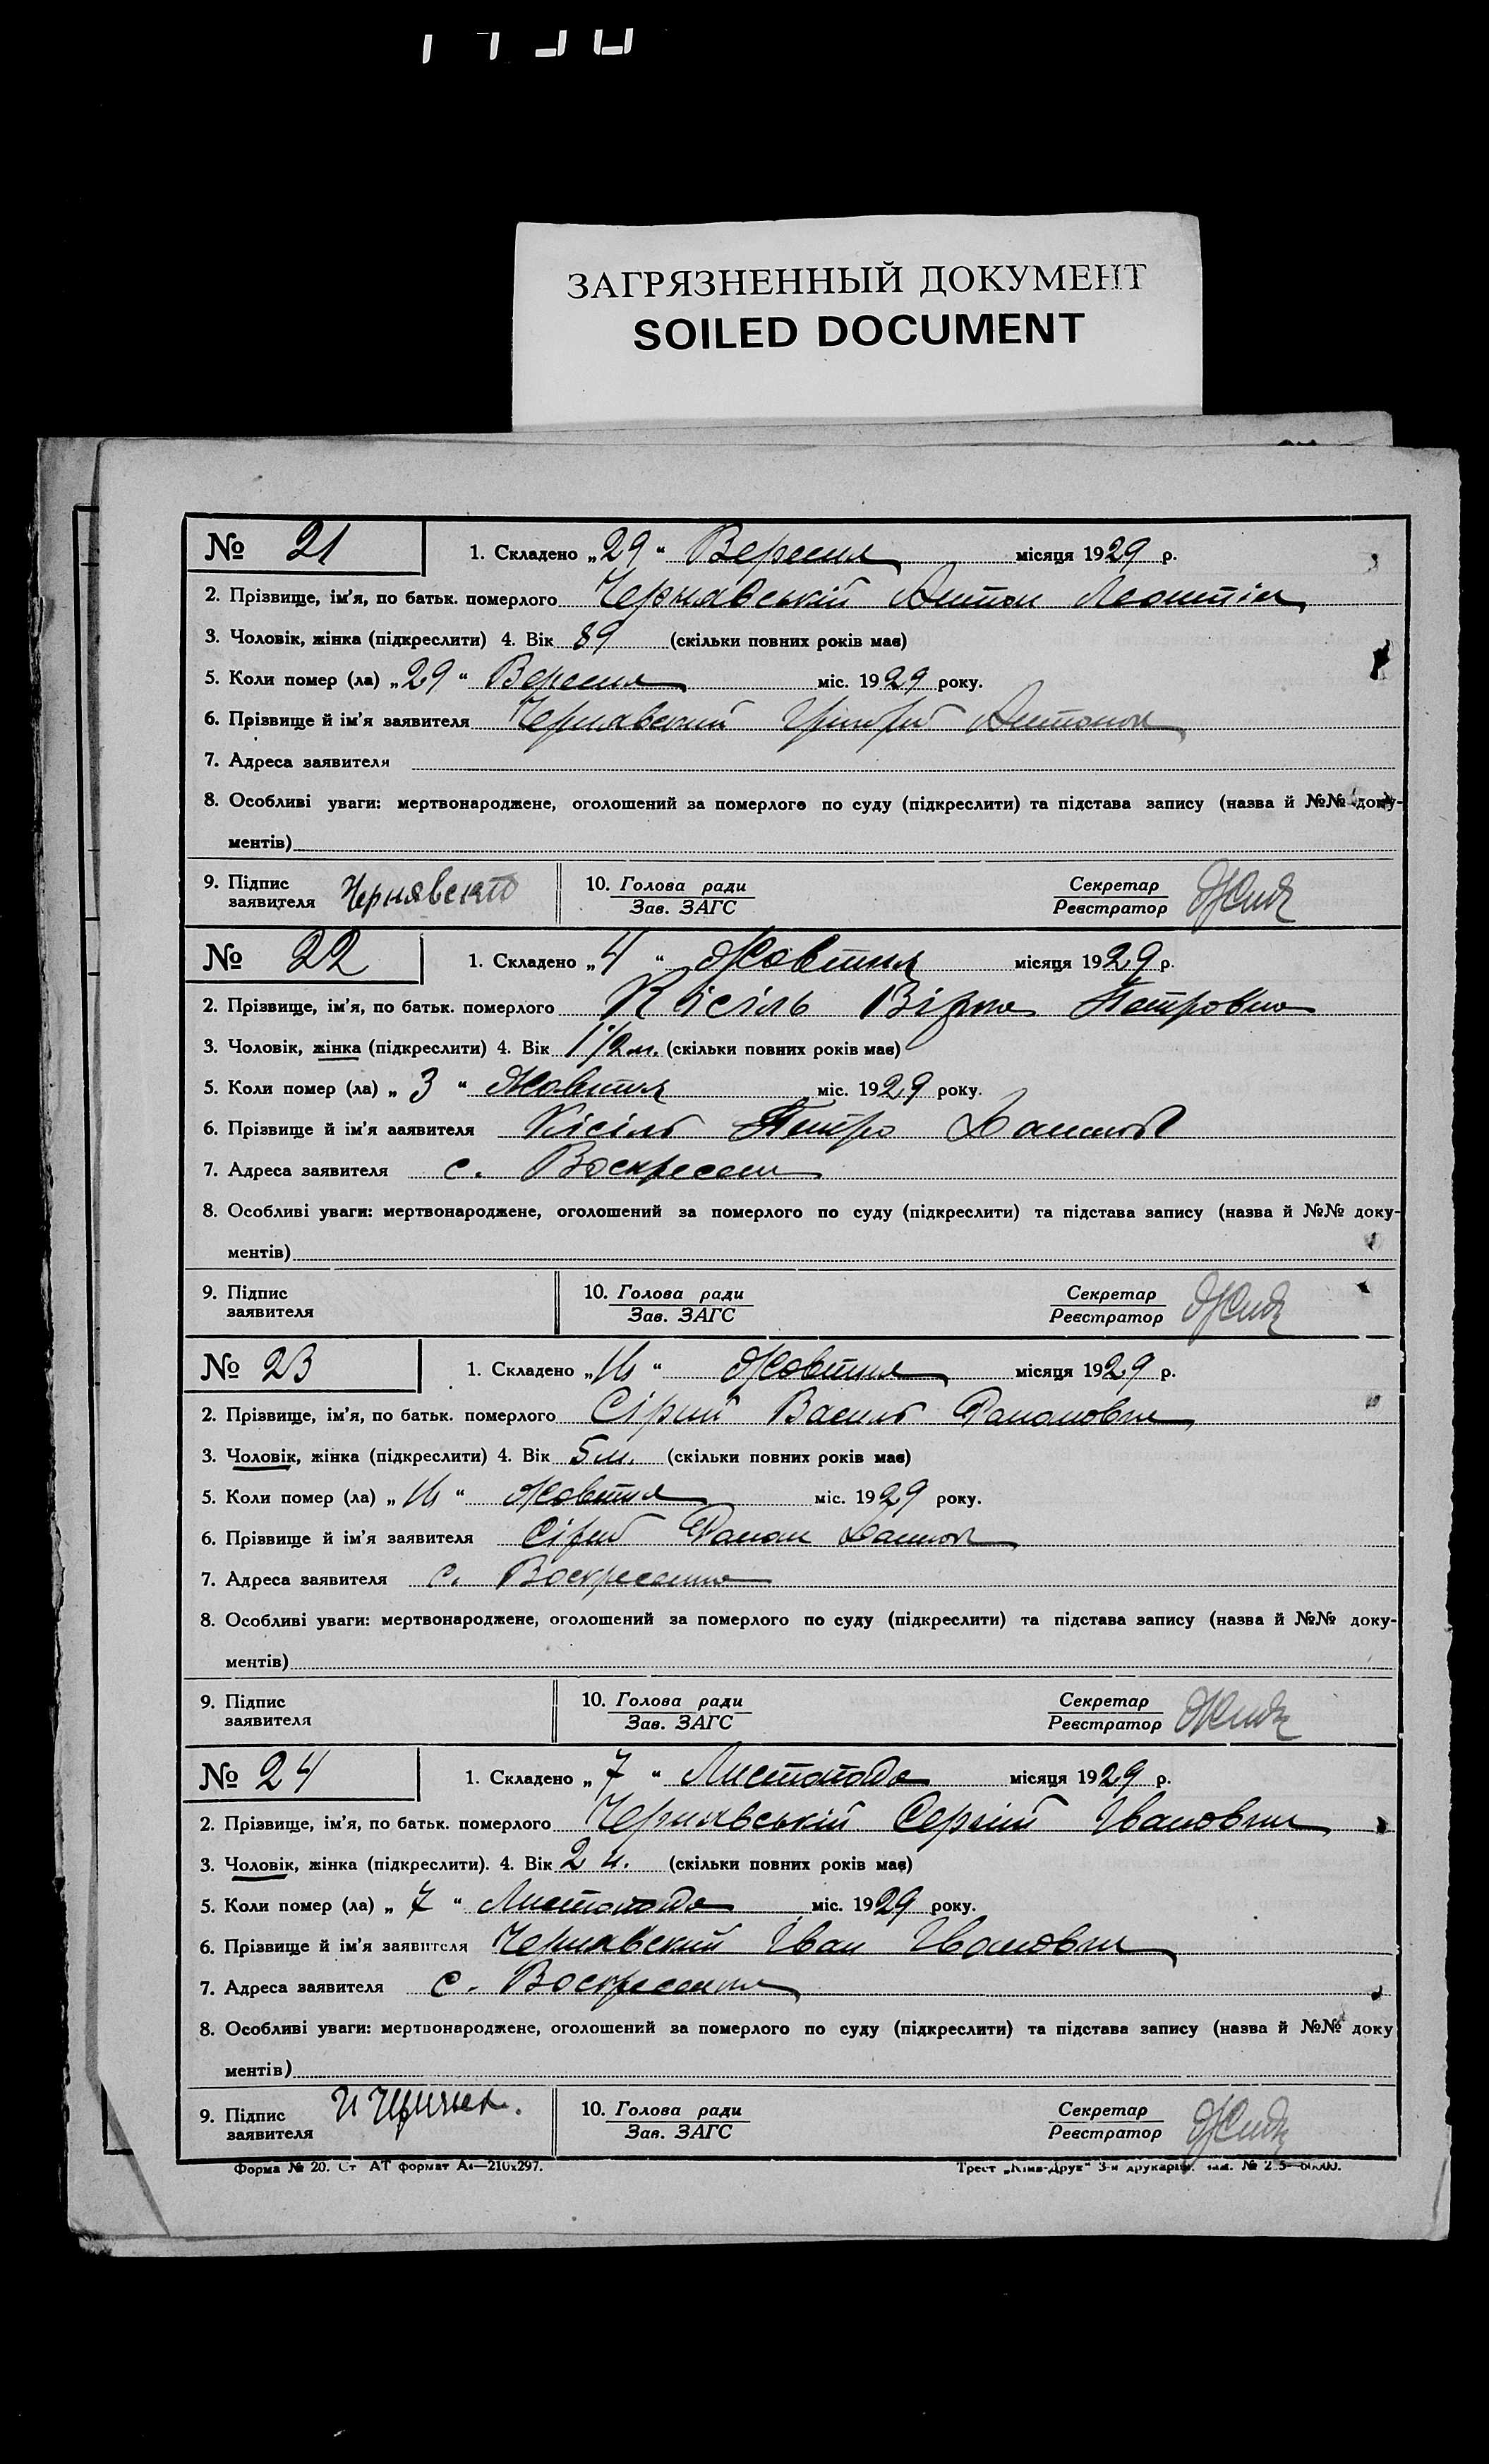 ЗАГРЯЗНЕННЫЙ ДОКУМЕНТ
SOILED DOCUMENT
№ 21 1. Складено „29“ Вересня місяця 1929 р.
2. Прізвище, ім'я, по батьк. померлого Чернявській Антон Леонтін
3. Чоловік, жінка (підкреслити) 4. Вік 89 (скільки повних років має)
5. Коли помер (ла) „29“ Вересня міс. 1929 року.
6. Прізвище й ім'я заявителя Чернявский Антонов
7. Адреса заявителя
8. Особливі уваги: мертвонароджене, оголошений за померлого по суду (підкреслити) та підстава запису (назва й №№ доку-
ментів)
9. Підпис заявителя 10. Голова ради Секретар
Зав. ЗАГС Реєстратор
№ 22 1. Складено „4“ Жовтня місяця 1929 р.
2. Прізвище, ім'я, по батьк. померлого Кісіль Віра Петровна
3. Чоловік, жінка (підкреслити) 4. Вік 1 1/2 м. (скільки повних років має)
5. Коли помер (ла) „3“ Жовтня міс. 1929 року.
6. Прізвище й ім'я заявителя Кісіль Петро
7. Адреса заявителя с. Воскресен
8. Особливі уваги: мертвонароджене, оголошений за померлого по суду (підкреслити) та підстава запису (назва й №№ доку-
ментів)
9. Підпис заявителя 10. Голова ради Секретар
Зав. ЗАГС Реєстратор
№ 23 1. Складено „14“ Жовтня місяця 1929 р.
2. Прізвище, ім'я, по батьк. померлого Сірий Василь
3. Чоловік, жінка (підкреслити) 4. Вік 5 м. (скільки повних років має)
5. Коли помер (ла) „14“ Жовтня міс. 1929 року.
6. Прізвище й ім'я заявителя Сірий
7. Адреса заявителя с. Воскресенна
8. Особливі уваги: мертвонароджене, оголошений за померлого по суду (підкреслити) та підстава запису (назва й №№ доку-
ментів)
9. Підпис заявителя 10. Голова ради Секретар
Зав. ЗАГС Реєстратор
№ 24 1. Складено „7“ Листопада місяця 1929 р.
2. Прізвище, ім'я, по батьк. померлого Чернявській Сергій Іванович
3. Чоловік, жінка (підкреслити). 4. Вік 2 (скільки повних років має)
5. Коли помер (ла) „7“ Листопада міс. 1929 року.
6. Прізвище й ім'я заявителя Чернявский Іван Іванович
7. Адреса заявителя с. Воскресенна
8. Особливі уваги: мертвонароджене, оголошений за померлого по суду (підкреслити) та підстава запису (назва й №№ доку
ментів)
9. Підпис заявителя 10. Голова ради Секретар
Зав. ЗАГС Реєстратор
Форма № 20. Ст АТ формат А4—210х297. Трест „Київ-Друк“ 3-я друкарня.